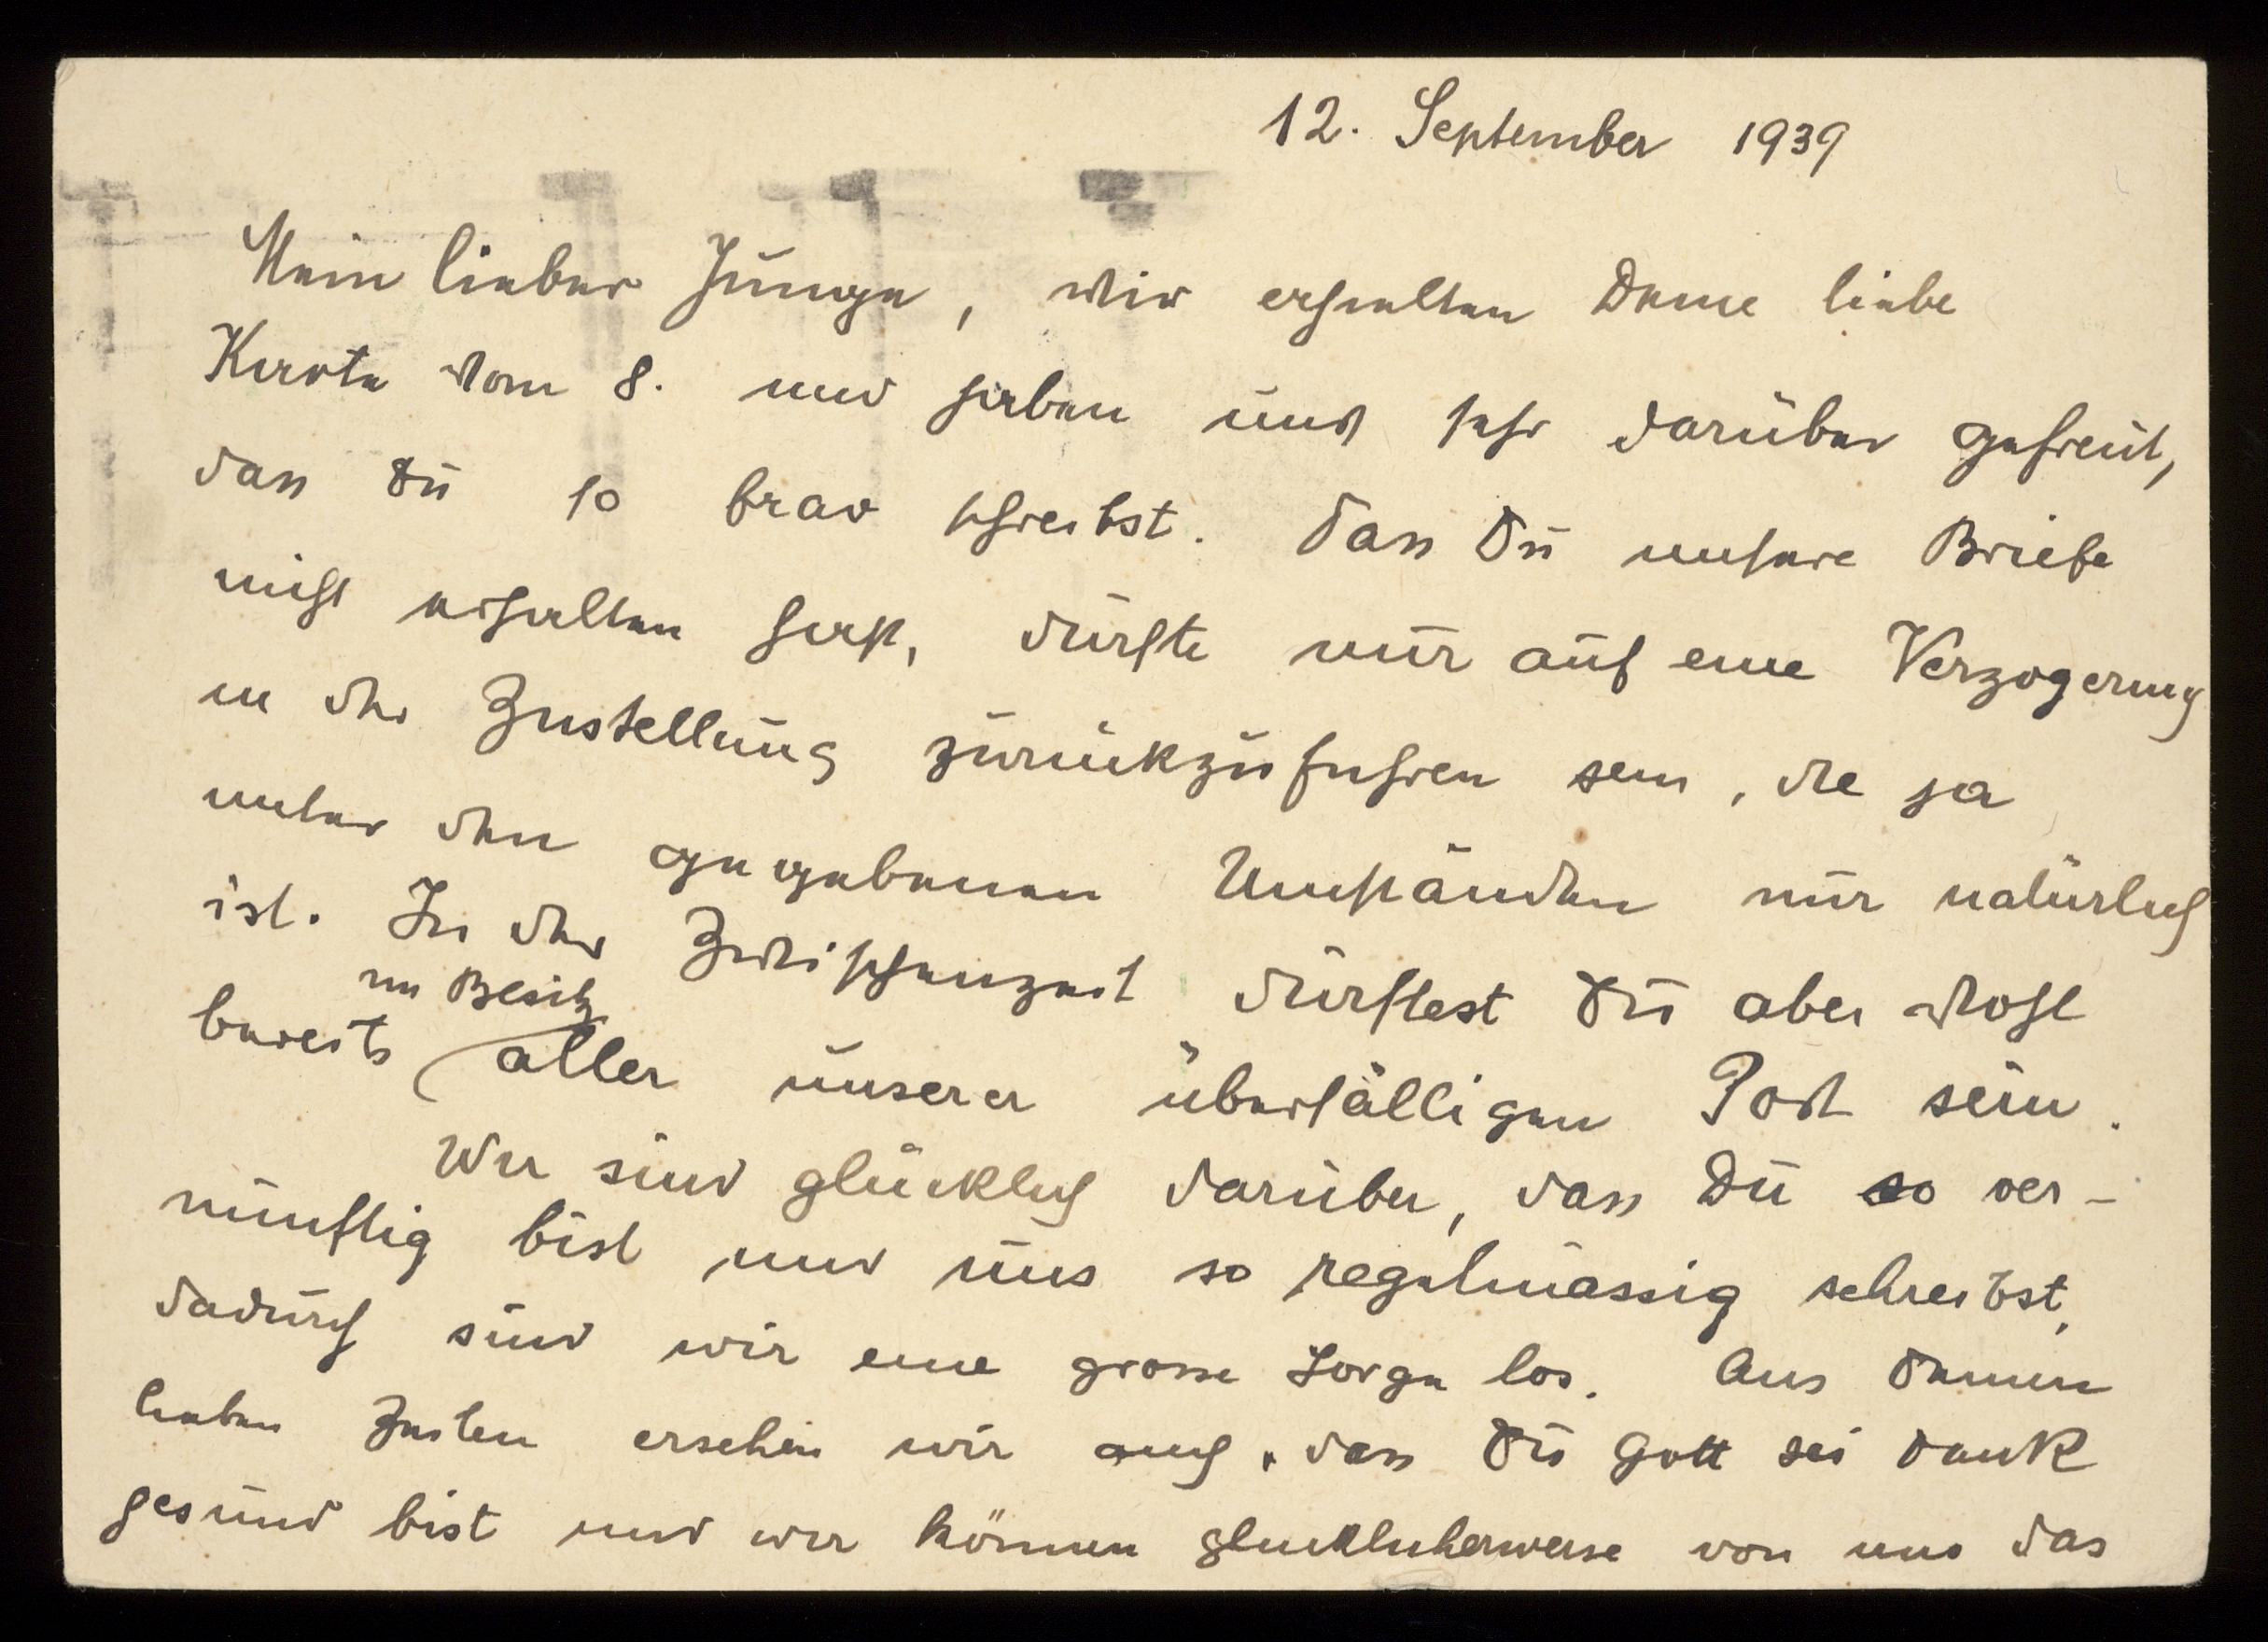 12. September 1939
Mein lieber Junge, wir erhielten Deine liebe
Karte vom 8. und haben uns sehr darüber gefreut,
dass Du so brav schreibst. Dass Du unsere Briefe
nicht erhalten hast, dürfte nur auf eine Verzogerung
in der Zustellung zurückzufuhren sein, die ja
unter den gegebenen Umständen nur natürlich
ist. In der Zwischenzeit dürftest Du aber wohl
im Besitz
bereits aller unserer überfälligen Post sein.
Wir sind glücklich darüber, dass Du so ver-
nünftig bist und uns so regelmässig schreibst,
dadurch sind wir eine grosse Sorge los. Aus Deinen
lieben Zeilen ersehen wir auch, dass Du Gott sei Dank
gesund bist und wir können glucklicherweise von uns das